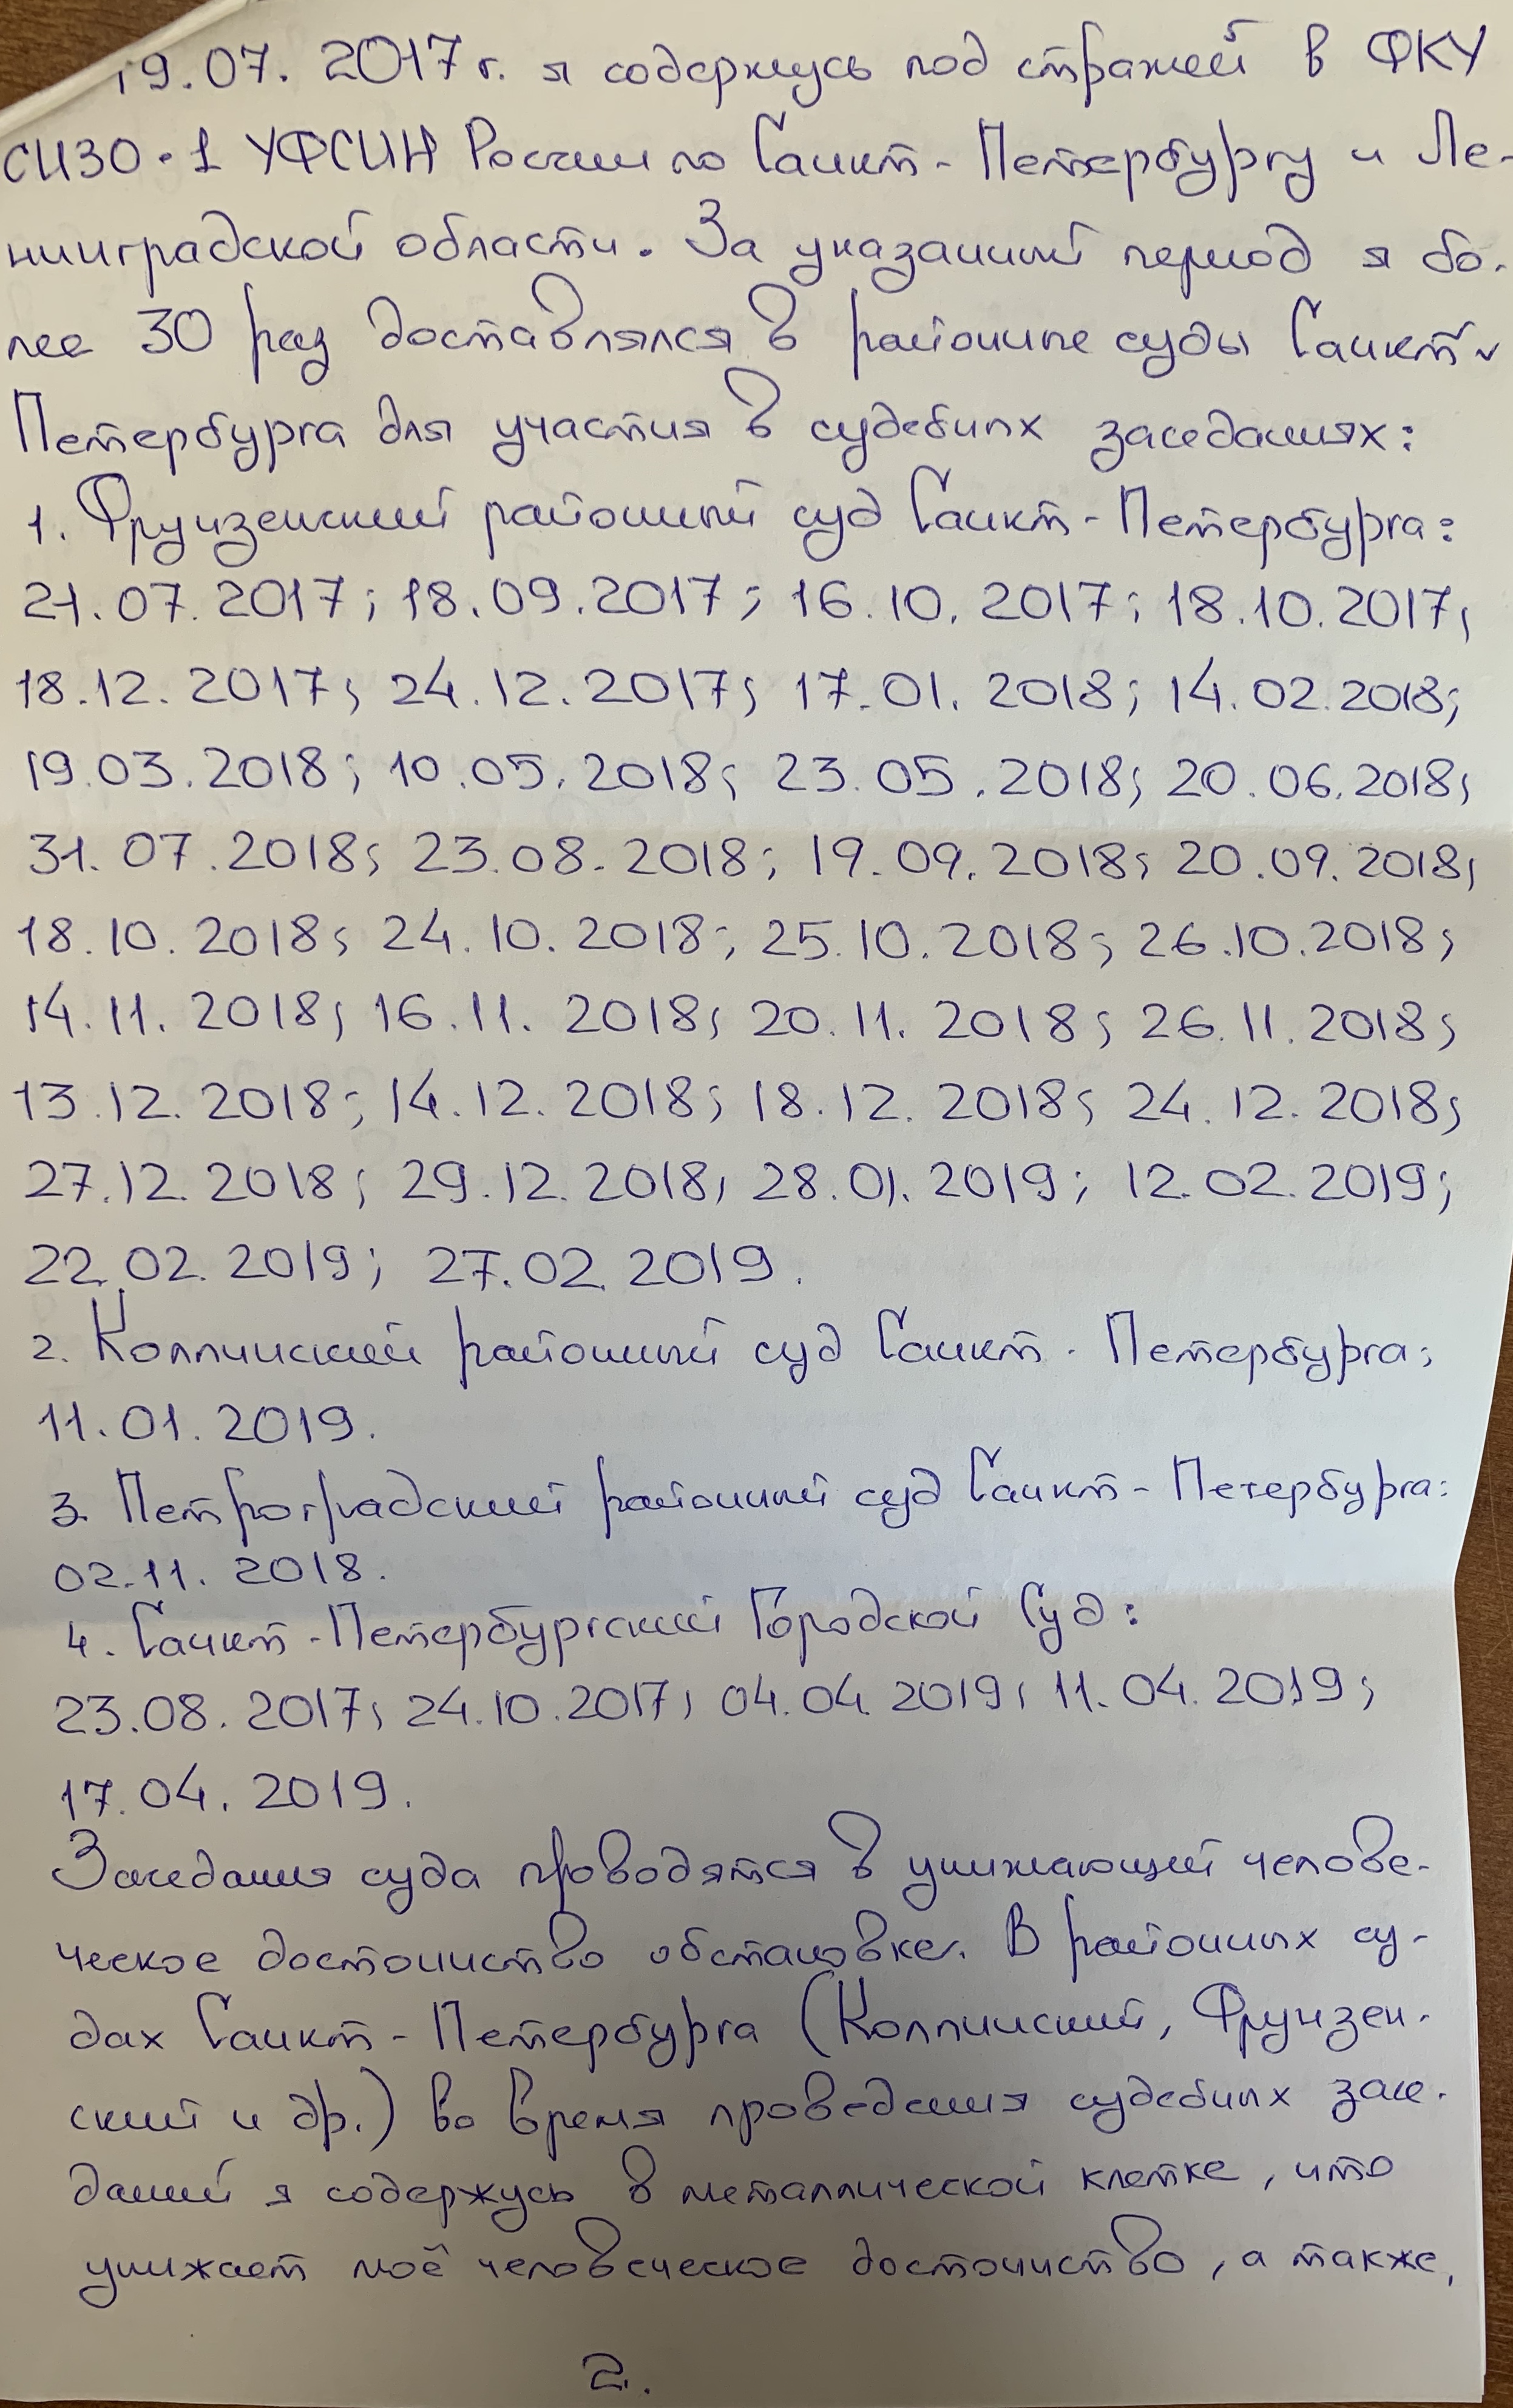 19.07.2017г. я содержусь под стражей в ФКУ
СИЗО-1 УФСИН России по Санкт-Петербургу и Ле-
нинградской области. За указанный период я бо-
лее 30 раз доставлялся в районные суды Санкт-
Петербурга для участия в судебных заседаниях:
1. Фрунзенский районный суд Санкт-Петербурга:
21.07.2017; 18.09.2017; 16.10.2017; 18.10.2017;
18.12.2017; 24.12.2017; 17.01.2018; 14.02.2018;
19.03.2018; 10.05.2018; 23.05.2018; 20.06.2018;
31.07.2018; 23.08.2018; 19.09.2018; 20.09.2018;
18.10.2018; 24.10.2018; 25.10.2018; 26.10.2018;
14.11.2018; 16.11.2018; 20.11.2018; 26.11.2018;
13.12.2018; 14.12.2018; 18.12.2018; 24.12.2018;
27.12.2018; 29.12.2018; 28.01.2019; 12.02.2019;
22.02.2019; 27.02.2019.
2. Колпинский районный суд Санкт-Петербурга:
11.01.2019.
3. Петроградский районный суд Санкт-Петербурга:
02.11.2018.
4. Санкт-Петербургский Городской Суд:
23.08.2017; 24.10.2017; 04.04.2019; 11.04.2019;
17.04.2019.
Заседания суда проводятся в унижающей челове-
ческое достоинство обстановке. В районных су-
дах Санкт-Петербурга (Колпинский, Фрунзен-
ский и др.) во время проведения судебных засе-
даний я содержусь в металлической клетке, что
унижает моё человеческое достоинство, а также,
2.